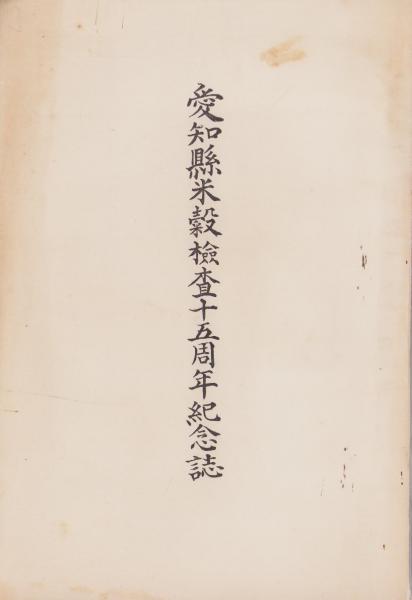 愛知縣米穀檢査十五周年紀念誌